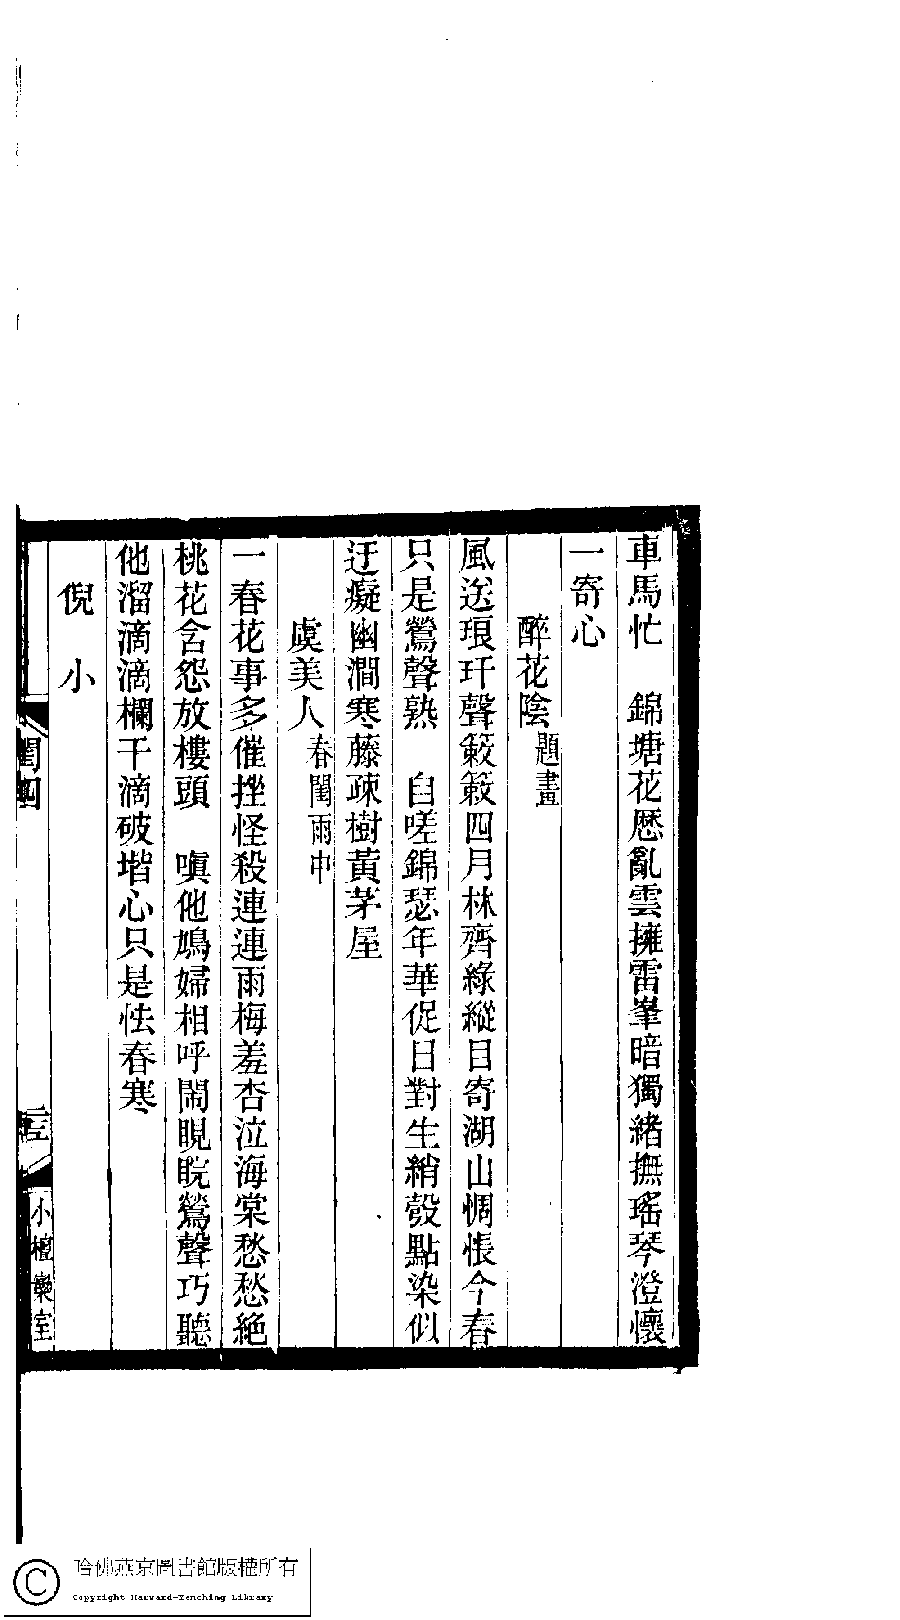 車馬忙　錦塘花歷亂雲擁雷峯暗獨緒撫瑤琴澄懷
一寄心
醉花陰題畫
風送琅玕聲簌簌四月林齊綠縱目寄湖山惆悵今春
只是鶯聲熟　自嗟錦瑟年華促日對生綃縠點染似
迂癡幽澗寒藤疎樹黃茅屋
虞美人春閨雨中
一春花事多催挫怪殺連連雨梅羞杏泣海棠愁愁絕
桃花含怨放樓頭　嗔他鳩婦相呼鬧睍睆鶯聲巧聽
他溜滴滴欄干滴破堦心只是怯春寒
倪小
閨四
小檀欒室
哈佛燕京圖書館版權所有
Copyright Harvard-Yenching Library